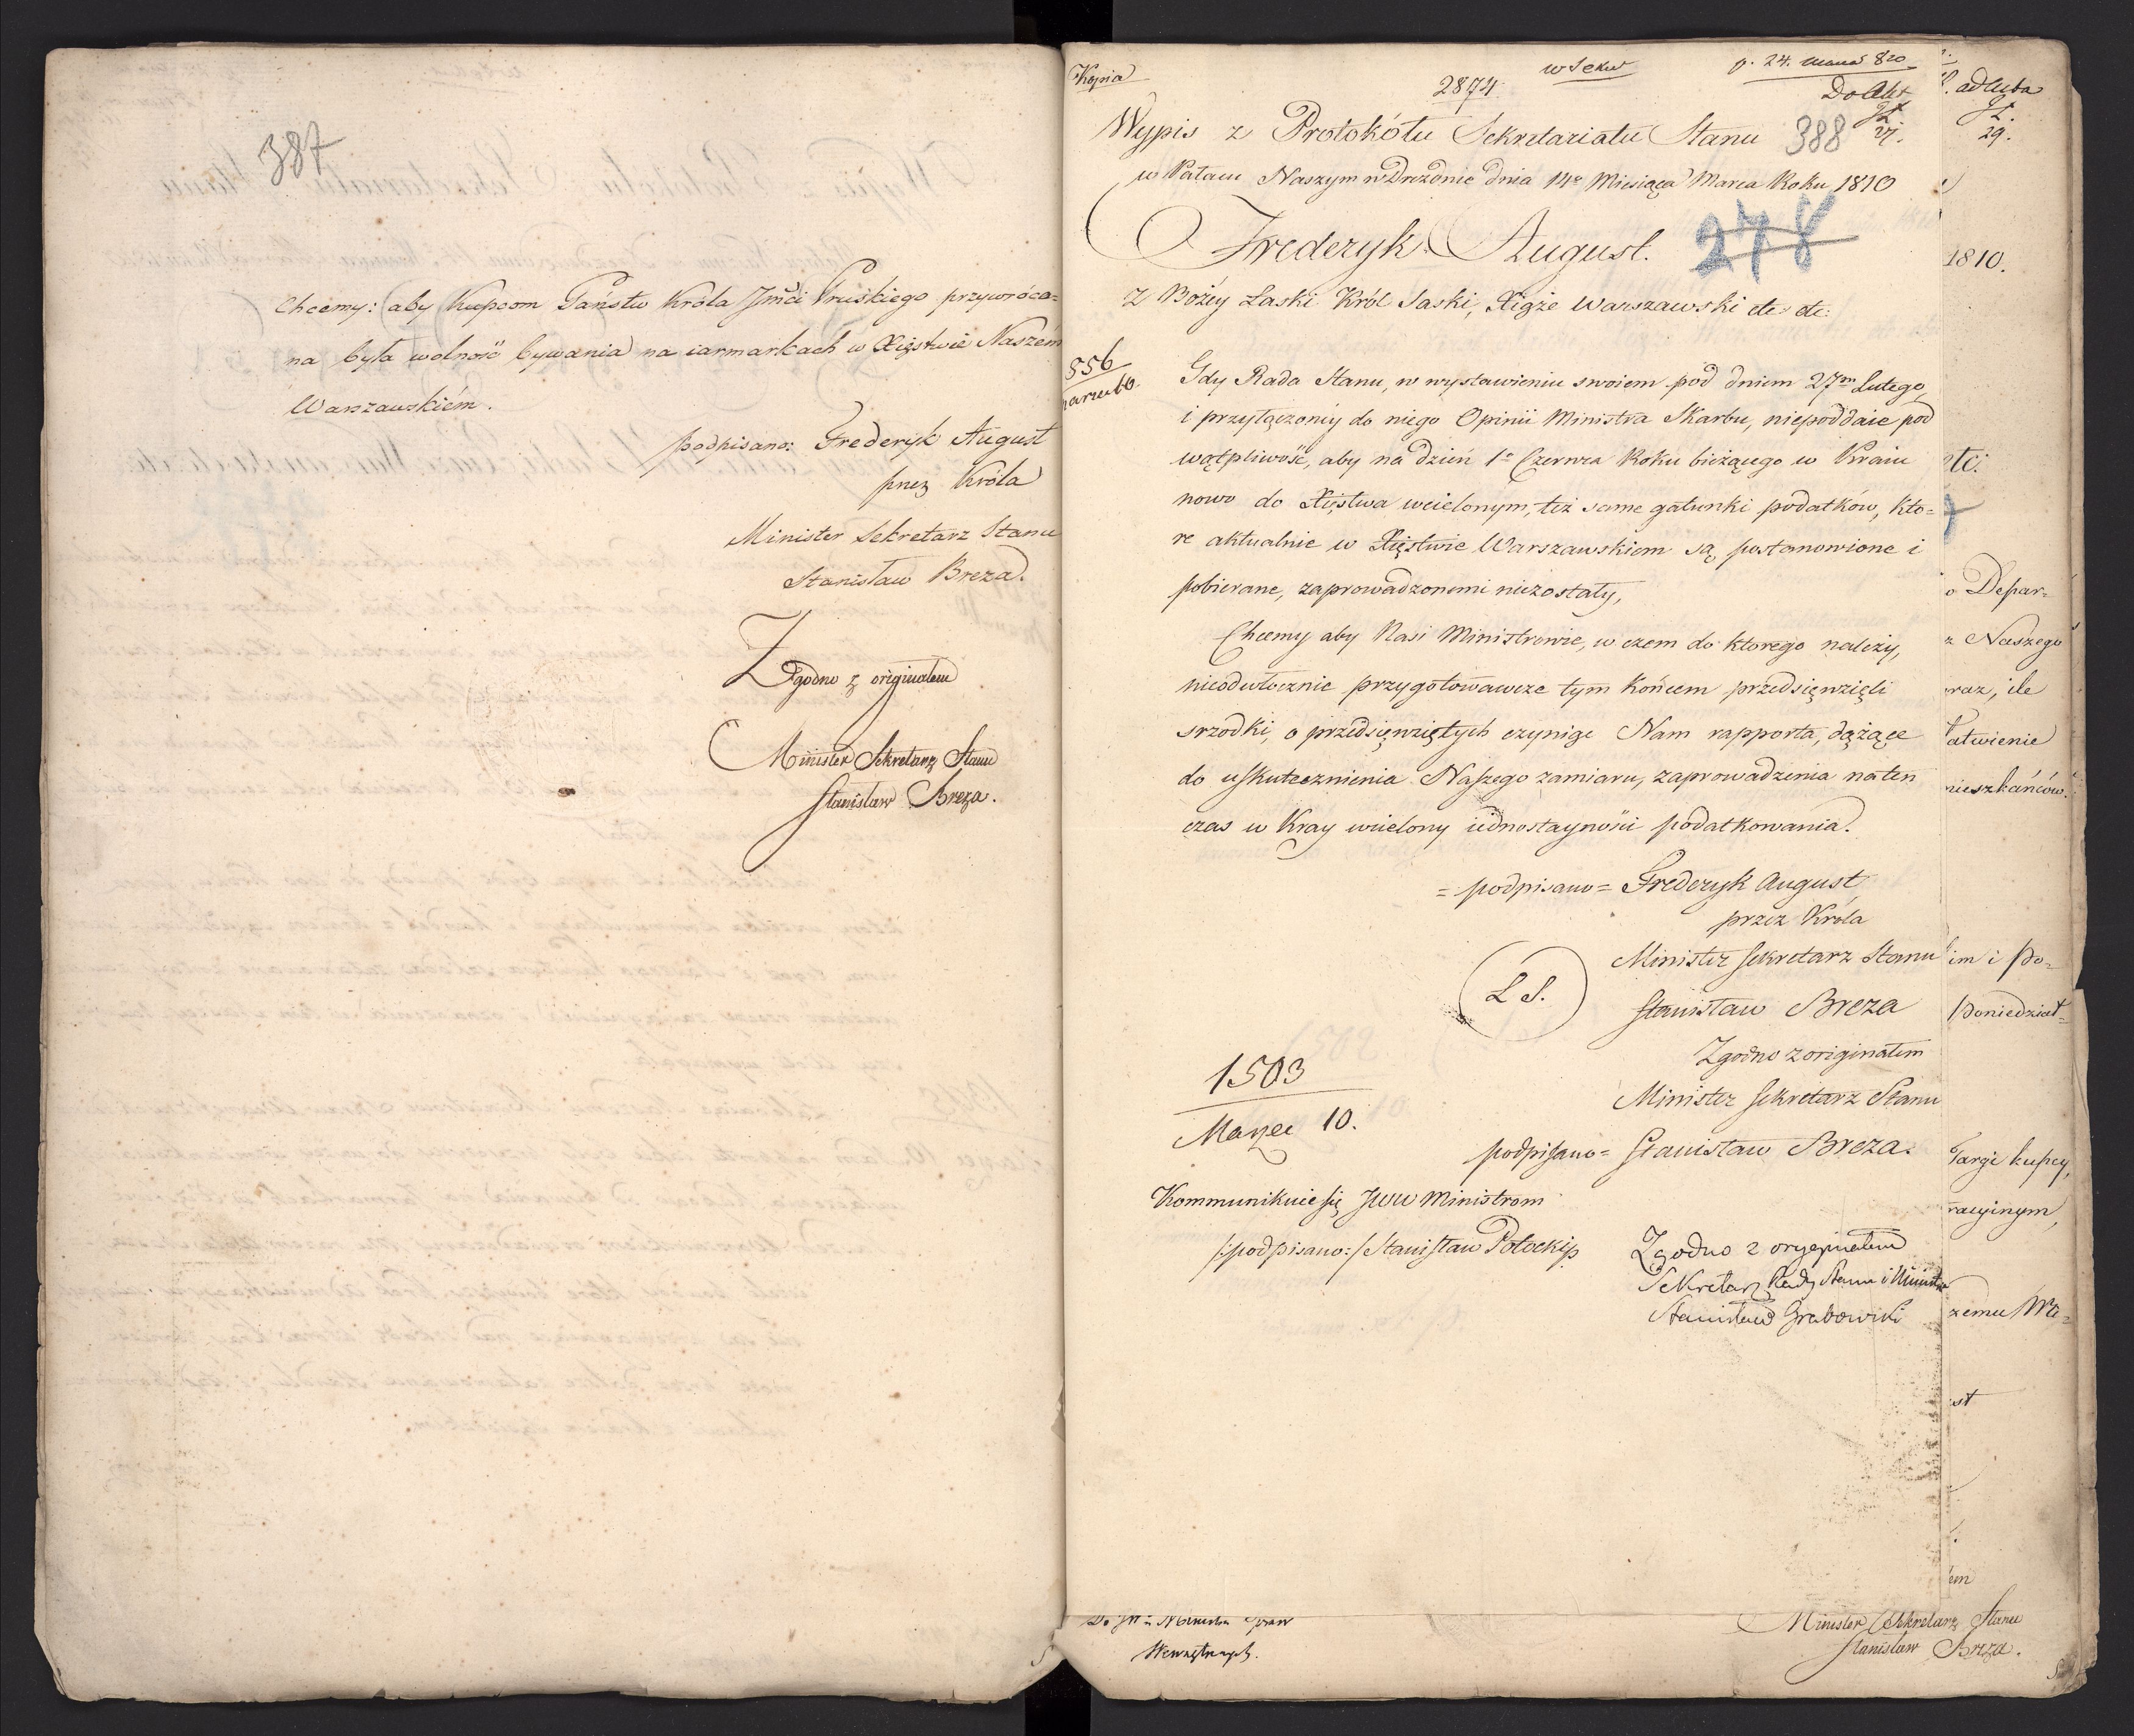 387
Chcemy: aby Kupcom Państw Króla Jmći Pruskiego przywróco=
na była wolność bywania na iarmarkach w Xięstwie Naszém
Warszawskiém.
podpisano: Frederyk August
przez Króla
Minister Sekretarz Stanu
Stanisław Breza.
Zgodno z originałem
Minister Sekretarz Stanu
Stanisław Breza.
Kopia
2874.
Do Akt
388
Wypis z Protokółu Sekretariatu Stanu
w Pałacu Naszym w Dreźdnie dnia 14o Miesiąca Marca Roku 1810
Frederyk August.
278
z Bożey Łaski Król Saski, Xiąże Warszawski etc etc:
856
Gdy Rada Stanu, w wystawieniu swoiem pod dniem 27m Lutego,
i przyłączoniy do niego Opinii Ministra Skarbu, niepoddaie pod
wątpliwość, aby na dzień 1o Czerwca Roku bieżącego w Kraiu
nowo do Xięstwa wcielonym, też same gatunki podatków, któ=
re aktualnie w Xięstwie Warszawskiem są, postanowione i
pobierane, zaprowadzonemi niezostały,
Chcemy aby Nasi Ministrowie, w czem do ktorego należy,
nieodwłocznie przygotowawcze tym końcem przedsięwzięli
srzodki, o przedsięwziętych czyniąc Nam rapporta, dążące
do uskutecznienia Naszego zamiaru, zaprowadzenia na ten
czas w Kray wcielony iednostayności podatkowania.
= podpisano = Frederyk August
przez Króla
Minister Sekretarz Stanu
L S.
Stanisław Breza
Zgodno z originałem
Minister Sekretarz Stanu
podpisano = Stanisław Breza.
1503
Marzec 10.
Kommunikuie się JWW Ministrom
/:podpisano:/ Stanisław Potocki
Zgodno z oryginałem
Sekretarz Rady Stanu i Ministrów
Stanisław Grabowski
29.
1810.
etc:
o Depar=
z Naszego
raz, ile
łatwienie
mieszkańców.
im i po=
poniedział=
Targi kupcy,
racyinym,
zemu Mi=
st
em
Do JW Ministra Spraw
Wewnętrznych.
Minister Sekretarz Stanu
Stanisław Breza.